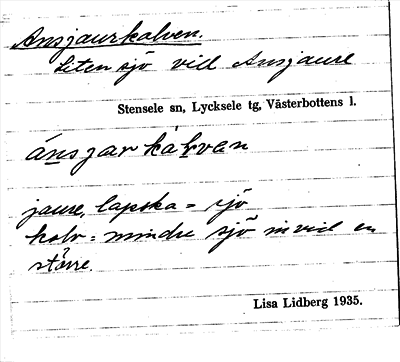 Ansjaurkalven.
Liten sjö vid Ansjaure
Stensele sn, Lycksele tg, Västerbottens l.
ánsjarkálven
jaure, lapska = sjö
kalv = mindre sjö invid en
större.
Lisa Lidberg 1935.